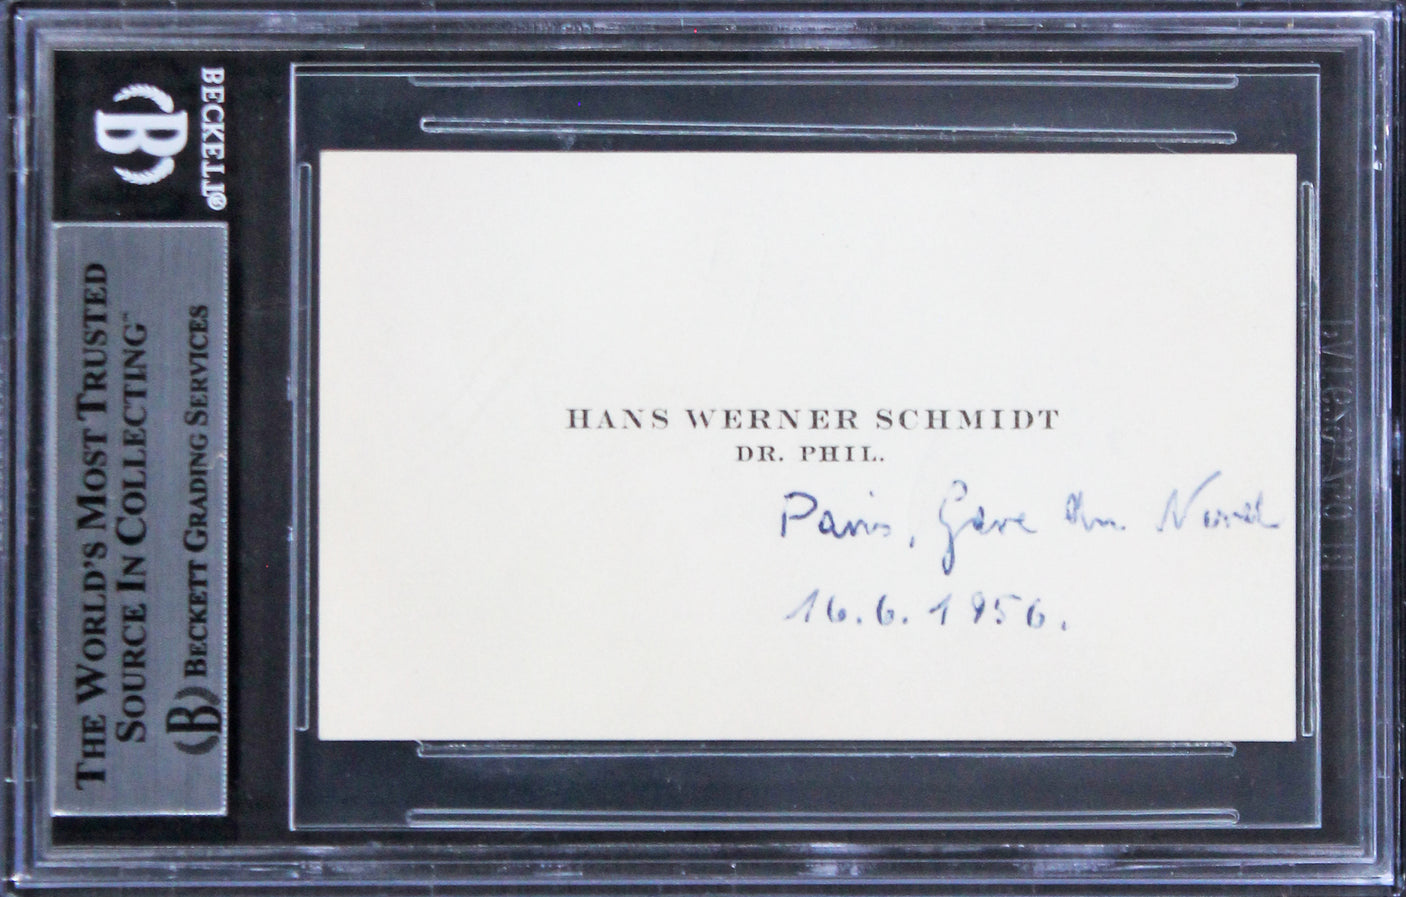 BECKETT®
B
THE WORLD'S MOST TRUSTED
SOURCE IN COLLECTING™
B BECKETT GRADING SERVICES
HANS WERNER SCHMIDT
DR. PHIL.
Paris, Gare du Nord
16.6.1956.